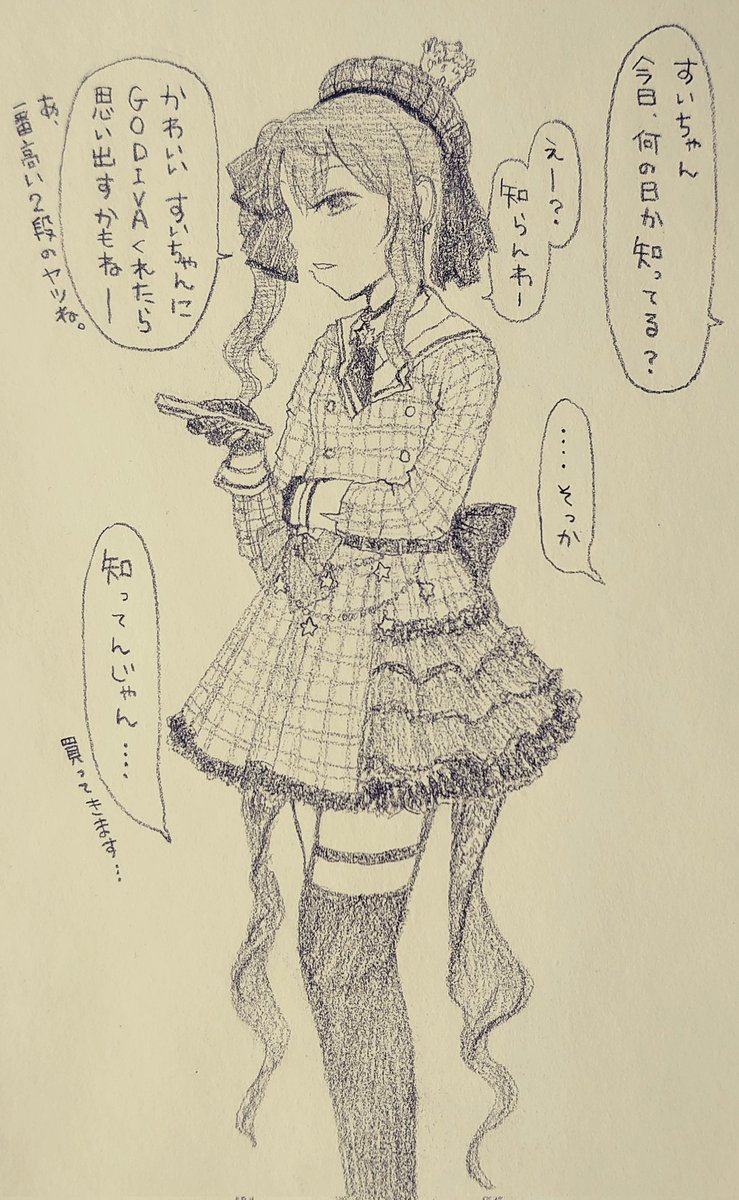 すいちゃん
今日、何の日か知ってる？
えー？
知らんわー
‥‥そっか
かわいい すいちゃんに
GODIVAくれたら
思い出すかもねー
あ、
一番高い2段のヤツね。
知ってんじゃん‥‥
買ってきます…